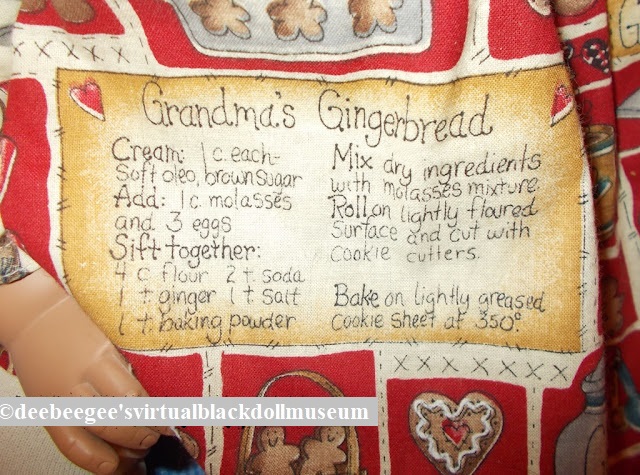 Grandma's Gingerbread
Cream: 1 c. each-
Soft oleo, brown sugar
Add: 1 c molasses
and 3 eggs
Sift together:
4 c flour 2 t soda
1 t ginger 1 t salt
1 t baking powder
Mix dry ingredients
with molasses mixture.
Roll on lightly floured
Surface and cut with
cookie cutters.
Bake on lightly greased
cookie sheet at 350°.
©deebeegee'svirtualblackdollmuseum